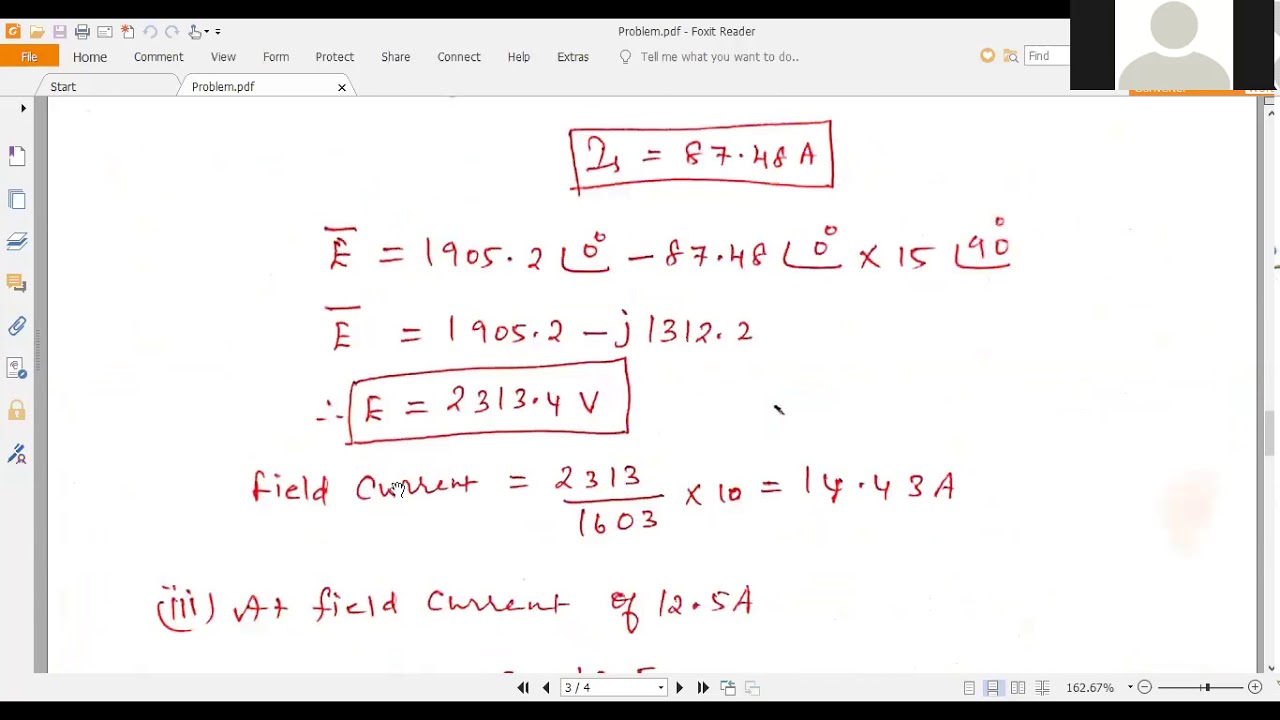 Problem.pdf - Foxit Reader
File Home Comment View Form Protect Share Connect Help Extras Tell me what you want to do.. Find
Start Problem.pdf
I_s = 87.48 A
E̅ = 1905.2 ∠0° − 87.48 ∠0° × 15 ∠90°
E̅ = 1905.2 − j 1312.2
∴ E = 2313.4 V
field Current = 2313/1603 × 10 = 14.43 A
(iii) At field Current of 12.5A
3 / 4 162.67%